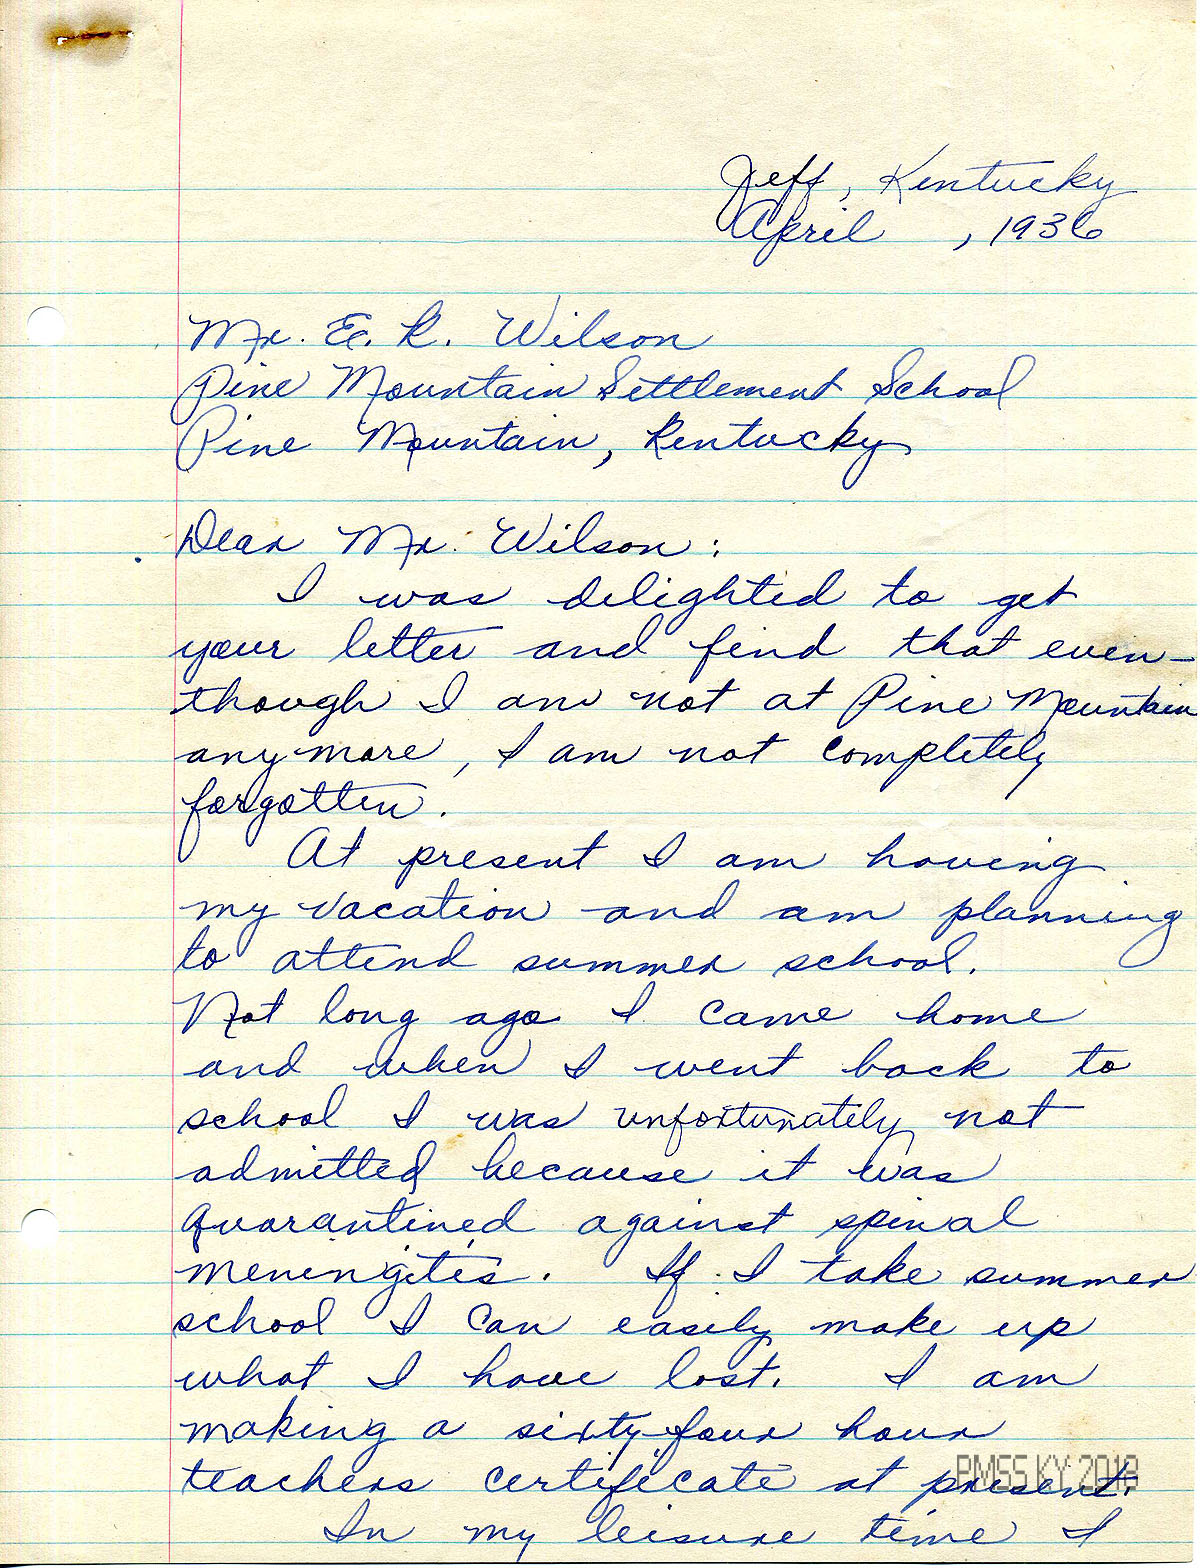 Jeff, Kentucky
April , 1936
Mr. E. K. Wilson
Pine Mountain Settlement School
Pine Mountain, Kentucky
Dear Mr. Wilson:
I was delighted to get
your letter and find that even-
though I am not at Pine Mountain
anymore, I am not completely
forgotten.
At present I am having
my vacation and am planning
to attend summer school.
Not long ago I came home
and when I went back to
school I was unfortunately not
admitted because it was
quarantined against spinal
meningitis. If I take summer
school I can easily make up
what I have lost. I am
making a sixty-four hour
teachers certificate at present.
PMSS KY 2018
In my leisure time I